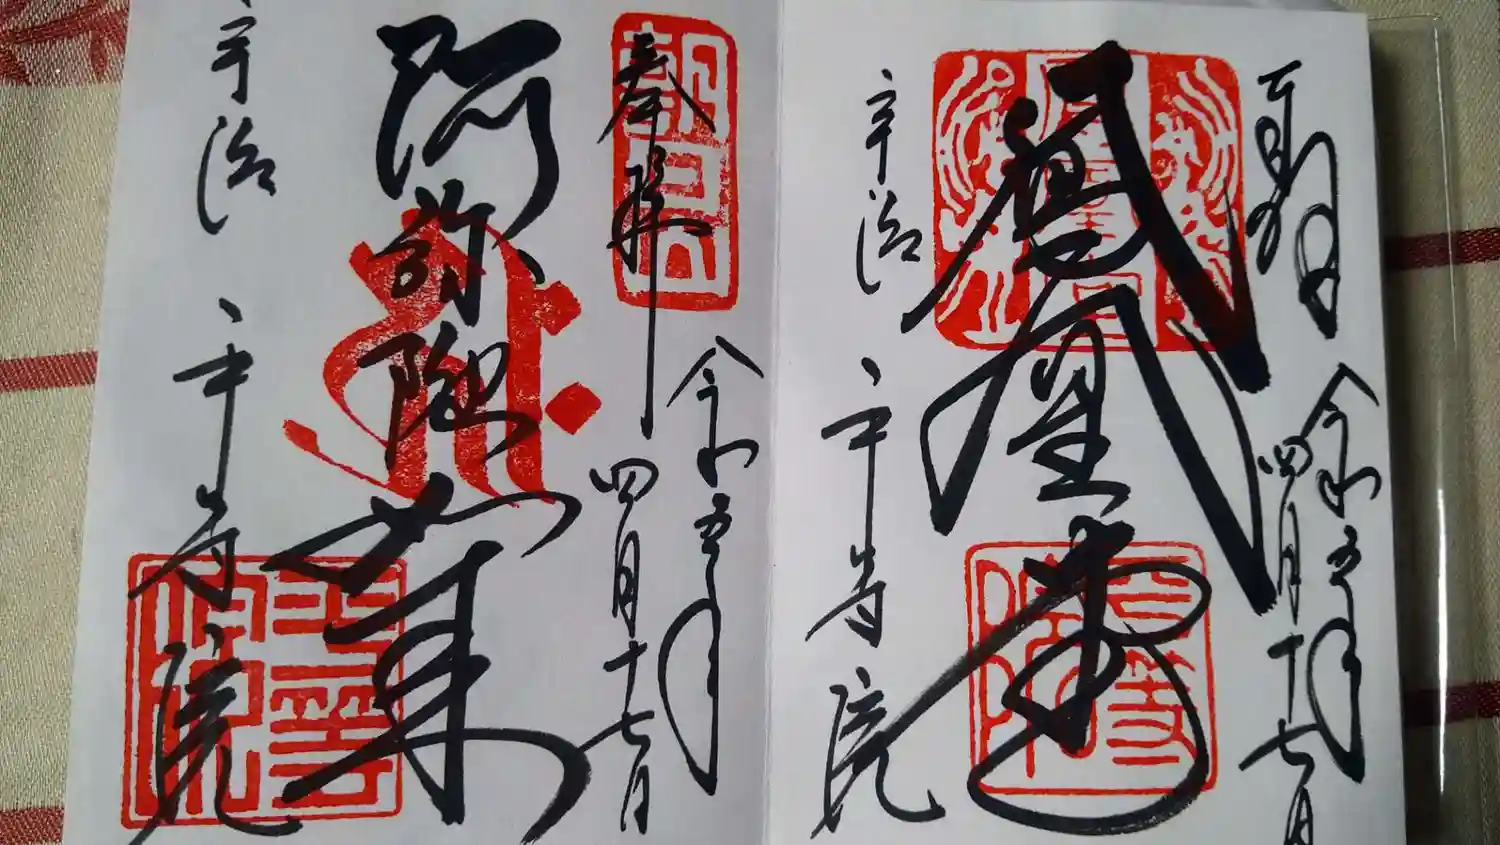 奉拝
令和五年
四月十七日
鳳凰堂
宇治 平等院
奉拝
令和五年
四月十七日
阿弥陀如来
宇治 平等院